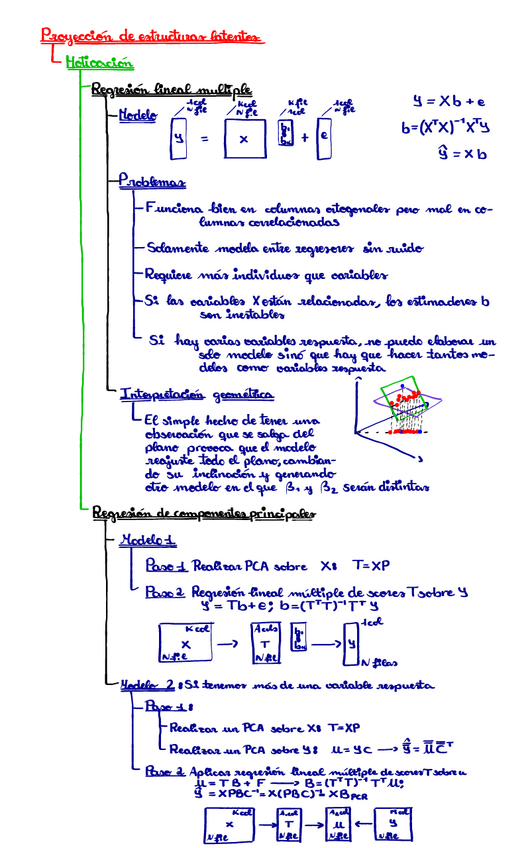 Proyección de estructuras latentes
Motivación
Regresión lineal multiple
Modelo
1 col
N fil
K col
N fil
K fil
1 col
1 col
N fil
y = x + e
y = Xb + e
b=(XᵀX)⁻¹Xᵀy
ŷ = xb
Problemas
Funciona bien en columnas ortogonales pero mal en co-
lumnas correlacionadas
Solamente modela entre regresores sin ruido
Requiere más individuos que variables
Si las variables X están relacionadas, los estimadores b
son inestables
Si hay varias variables respuesta, no puedo elaborar un
solo modelo sinó que hay que hacer tantos mo-
delos como variables respuesta
Interpretación geométrica
El simple hecho de tener una
observación que se salga del
plano provoca que el modelo
reajuste todo el plano, cambian-
do su inclinación y generando
otro modelo en el que β₁ y β₂ serán distintas
Regresión de componentes principales
Modelo 1
Paso 1 Realizar PCA sobre X: T=XP
Paso 2 Regresión lineal múltiple de scores T sobre y
y = Tb+e; b=(TᵀT)⁻¹Tᵀy
K col
X
N fil
A cols
T
N fil
y
1 col
N filas
Modelo 2: Si tenemos más de una variable respuesta
Paso 1:
Realizar un PCA sobre X: T=XP
Realizar un PCA sobre Y: u = yc → ŷ = u cᵀ
Paso 2 Aplicas regresión lineal múltiple de scores T sobre u
u = TB + F → B=(TᵀT)⁻¹Tᵀu;
ŷ = XPBC⁻¹=X(PBC)⁻¹XB PCR
K col
x
N fil
A col
T
N fil
A col
u
N fil
M col
y
N fil